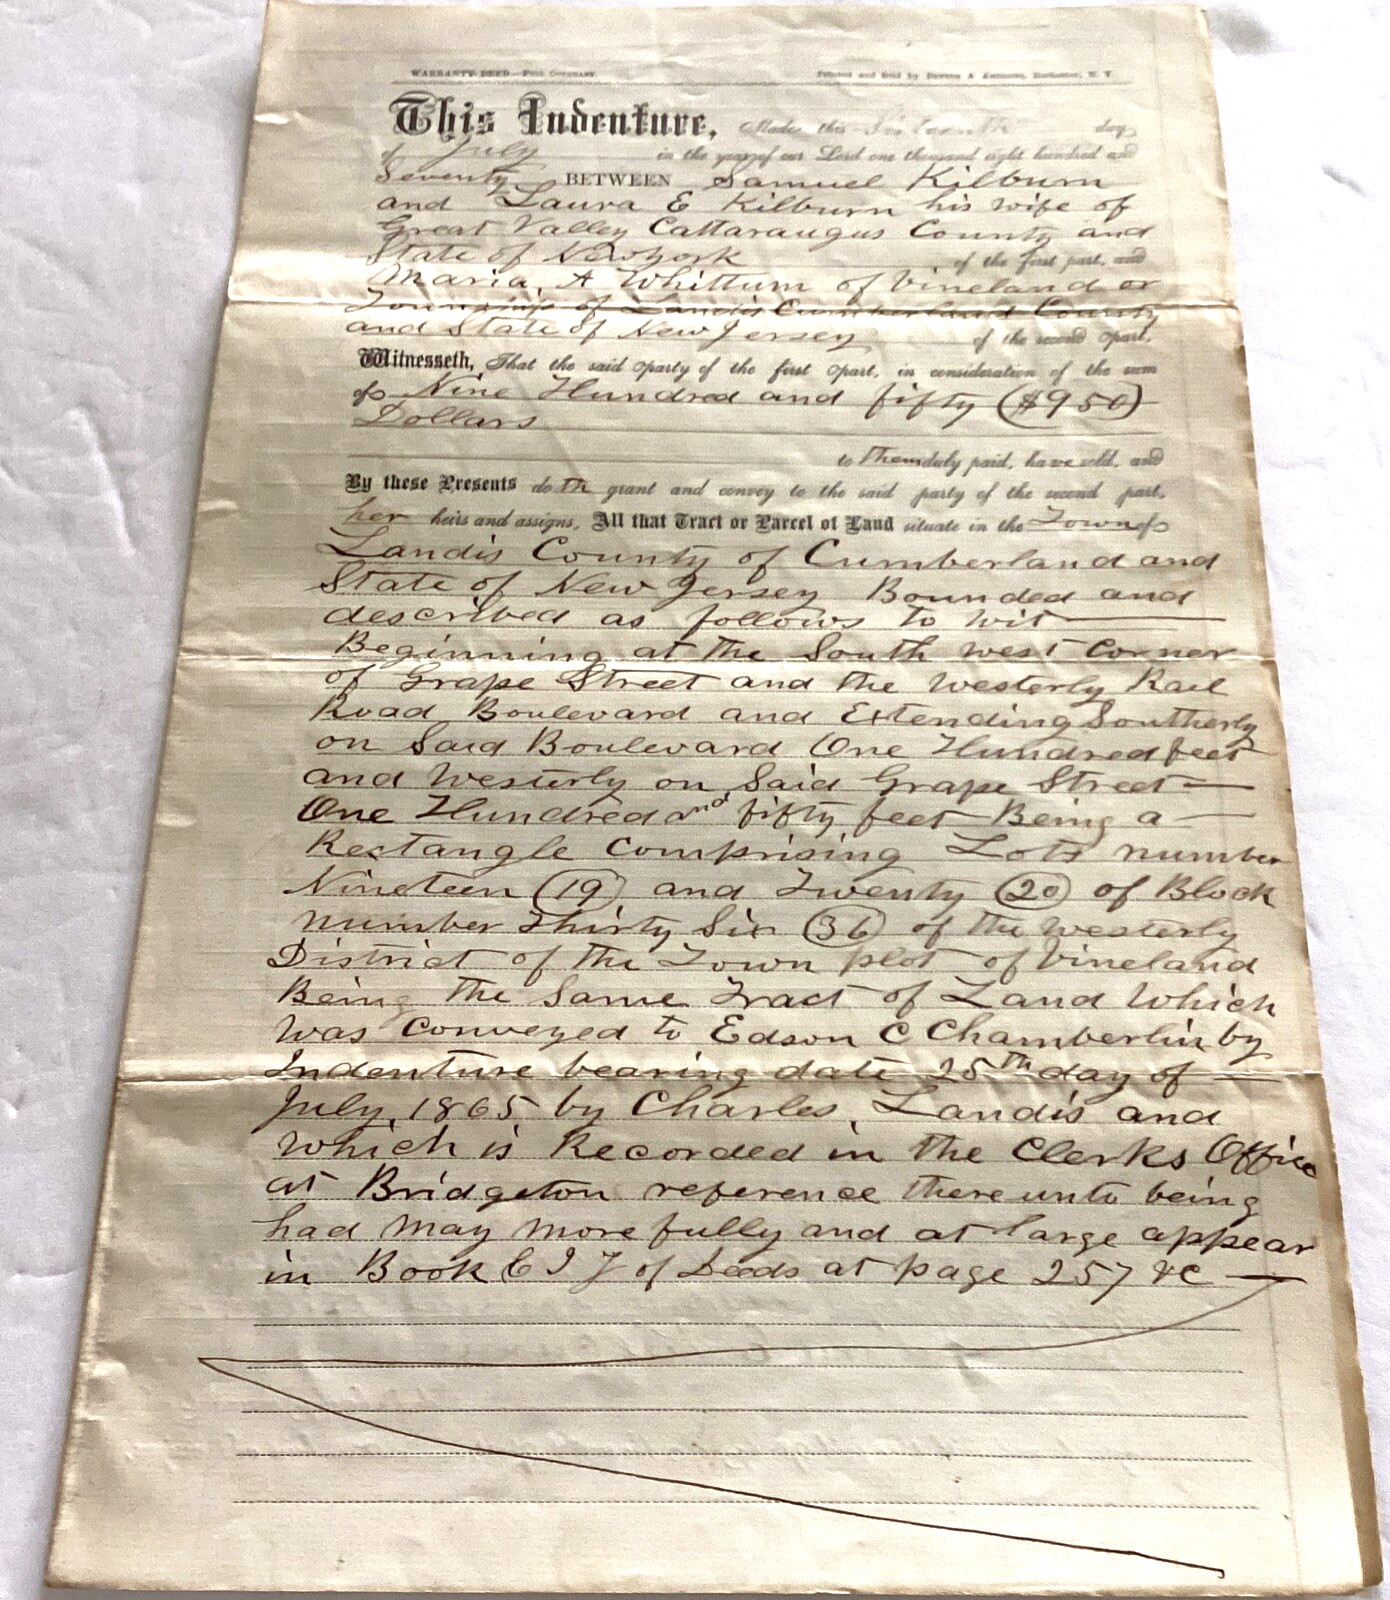 WARRANTY DEED—Full Covenant.
Printed and Sold by Rochester, N. Y.
This Indenture, Made this day
of July in the year of our Lord one thousand eight hundred and
Seventy BETWEEN Samuel Kilburn
and Laura E Kilburn his wife of
Great Valley Cattaraugus County and
State of New York of the first part, and
Maria, A Whittum of Vineland or
Township of Landis Cumberland County
and State of New Jersey of the second part,
Witnesseth, That the said party of the first part, in consideration of the sum
of Nine Hundred and fifty ($950)
Dollars
to them duly paid, have sold, and
By these Presents doth grant and convey to the said party of the second part,
her heirs and assigns, All that Tract or Parcel of Land situate in the Town of
Landis County of Cumberland and
State of New Jersey Bounded and
described as follows to wit
Beginning at the South west corner
of Grape Street and the Westerly Rail
Road Boulevard and Extending Southerly
on Said Boulevard One Hundred feet
and Westerly on Said Grape Street
One Hundred and fifty feet Being a
Rectangle Comprising Lots number
Nineteen (19) and Twenty (20) of Block
number Thirty Six (36) of the Westerly
District of the Town plot of Vineland
Being the Same Tract of Land Which
was conveyed to Edson C Chamberlin by
Indenture bearing date 25th day of
July, 1865 by Charles, Landis and
which is Recorded in the Clerks Office
at Bridgeton reference thereunto being
had may more fully and at large appear
in Book of Deeds at page 257 &c